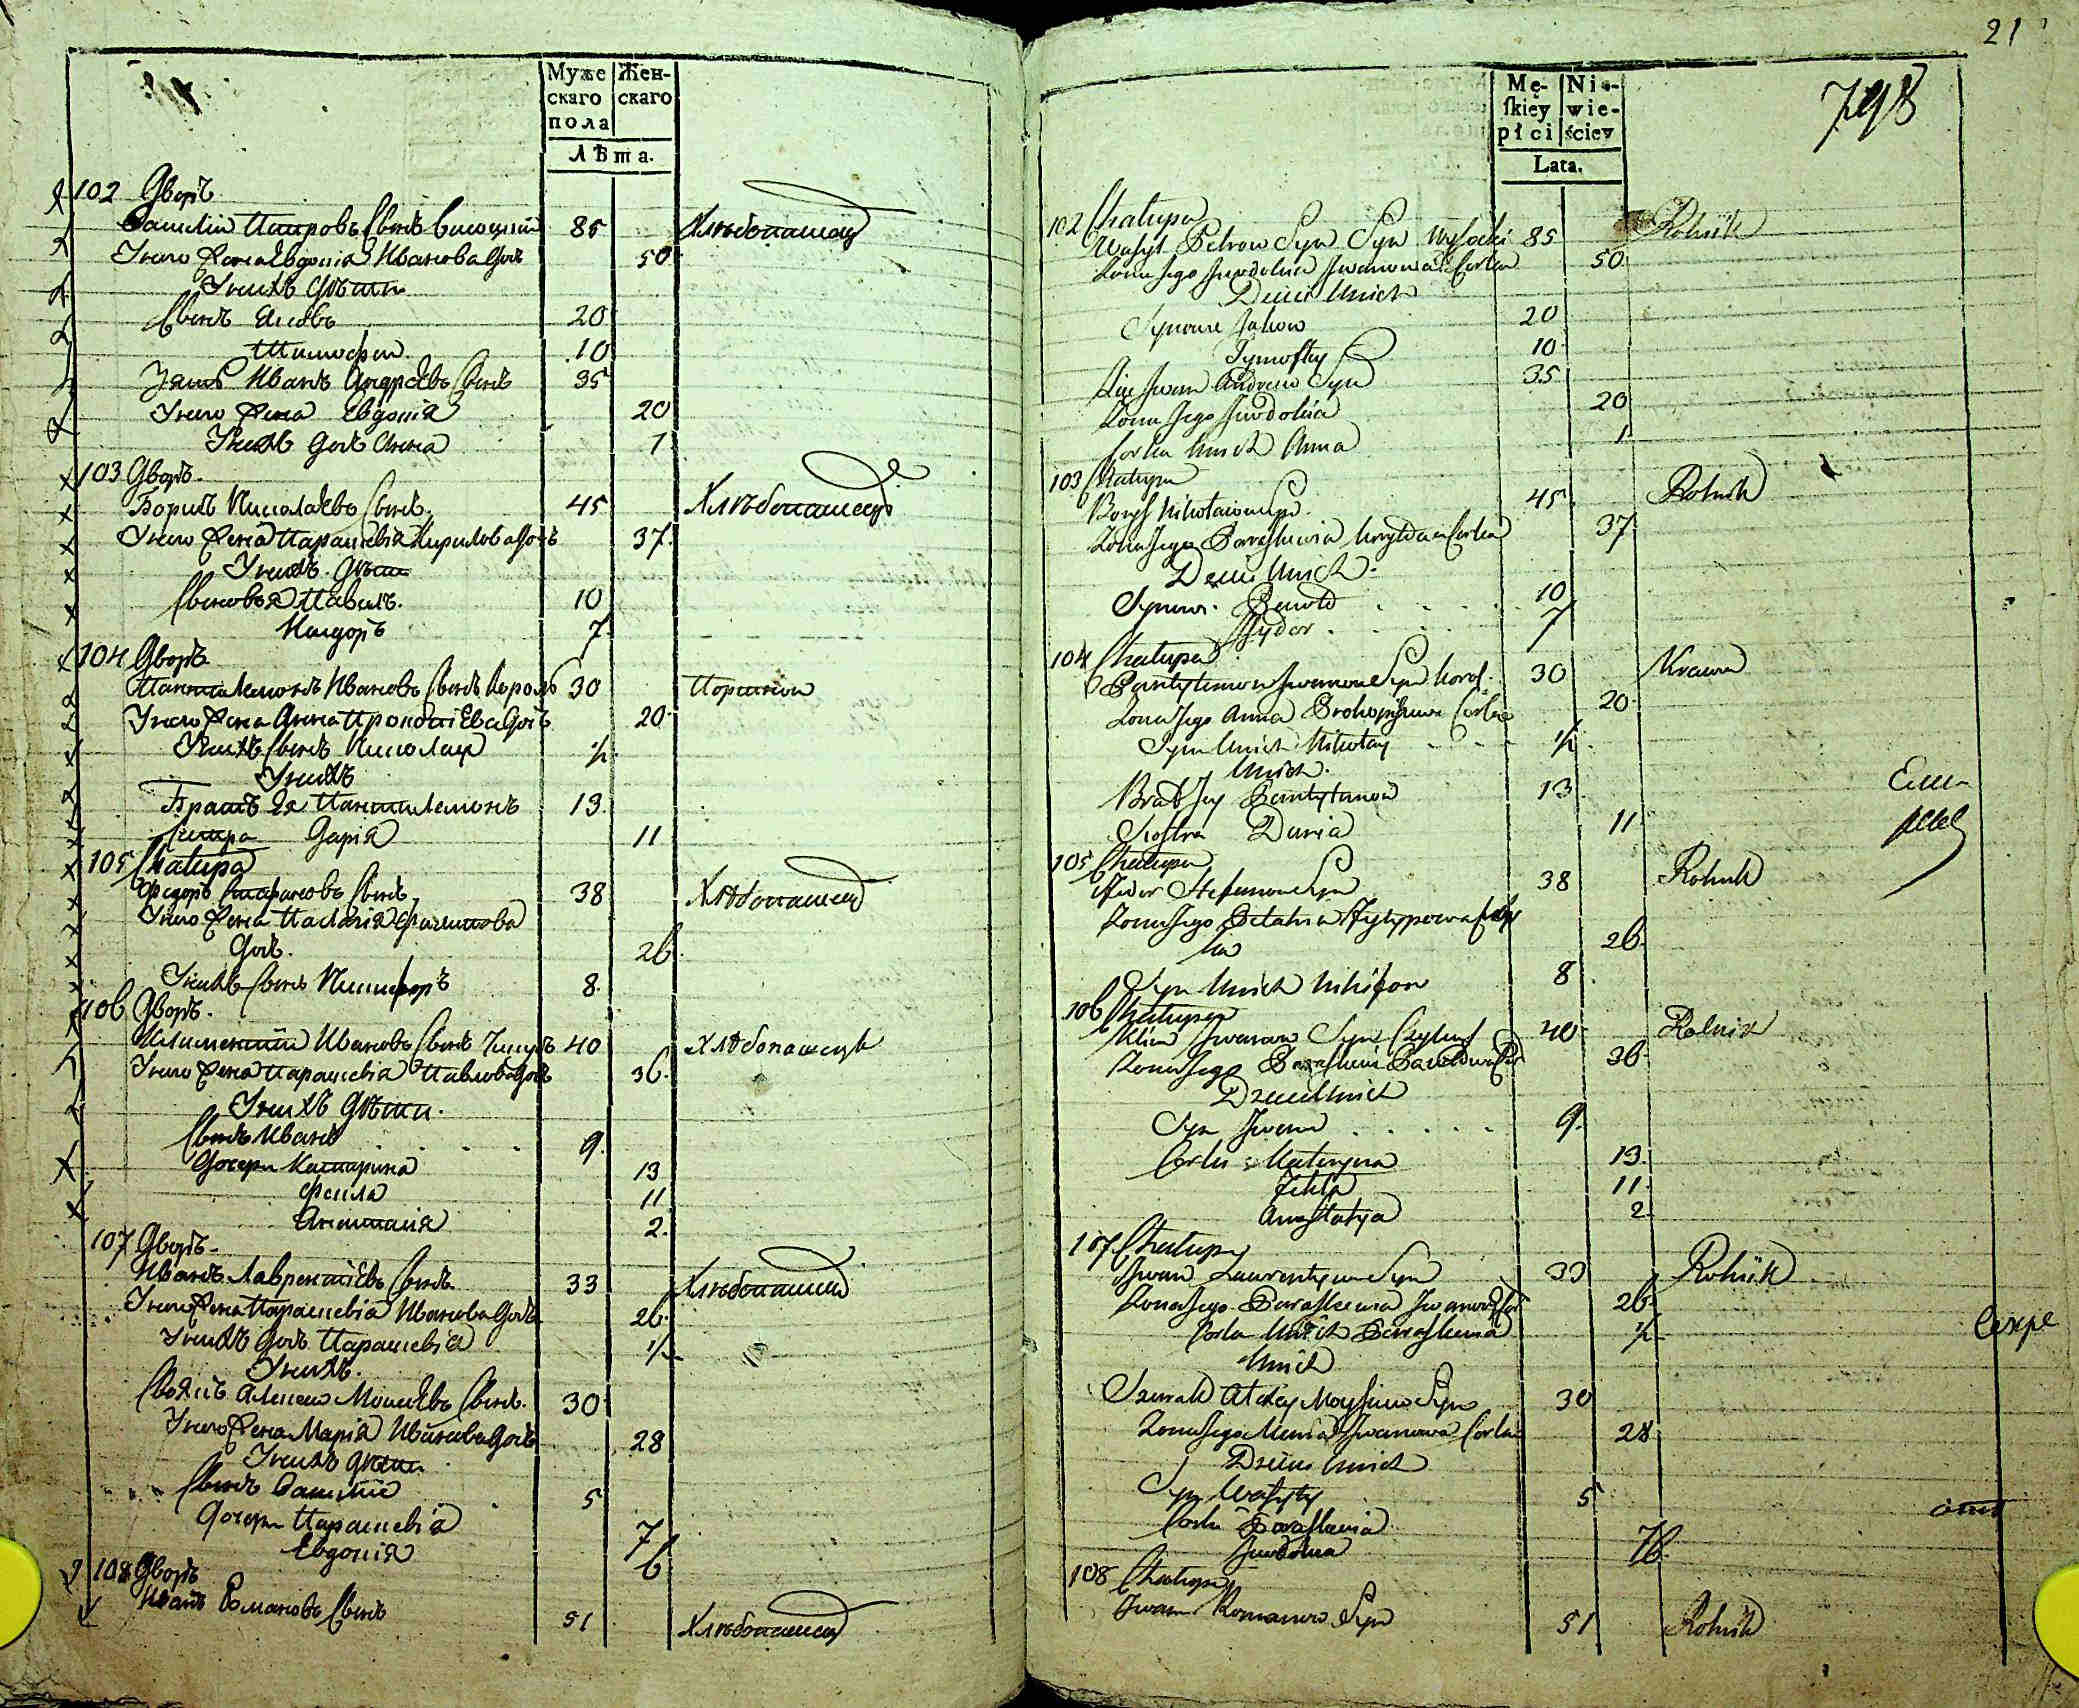 Муже
скаго
пола
Жен-
скаго
Лѣта.
102 Дворъ
Василій Петровъ Сынъ Висоцкій 85 Хлѣбопашецъ
У него Жена Евдокія Иванова Дочь 50
У нихъ Дѣти
Сынъ Яковъ 20
Тимофей 10
Зять Иванъ Андреевъ Сынъ 35
У него Жена Евдокія 20
У нихъ Дочь Анна 1
103 Дворъ
Борисъ Николаевъ Сынъ 45 Хлѣбопашецъ
У него Жена Параскевія Кирилова Дочь 37
У нихъ Дѣти
Сыновья Павелъ 10
Исидоръ 7
104 Дворъ
Пантилемонъ Ивановъ Сынъ Король 30 Портной
У него Жена Анна Прокопіева Дочь 20
У нихъ Сынъ Николай ½
У нихъ
Братъ 2й Пантилемонъ 13
Сестра Дарія 11
105 Chałupa
Федоръ Стефановъ Сынъ 38 Хлѣбопашецъ
У него Жена Пелагія Филипова
Дочь 26
У нихъ Сынъ Никифоръ 8
106 Дворъ
Климентій Ивановъ Сынъ 40 Хлѣбопашецъ
У него Жена Параскевія Павлова Дочь 36
У нихъ Дѣти
Сынъ Иванъ 9
Дочери Катарина 13
Фекла 11
Анастасія 2
107 Дворъ
Иванъ Лаврентіевъ Сынъ 33 Хлѣбопашецъ
У него Жена Параскевіа Иванова Дочь 26
У нихъ Дочь Параскевія ½
У нихъ
Своякъ Алексей Моисеевъ Сынъ 30
У него Жена Марія Иванова Дочь 28
У нихъ Дѣти
Сынъ Василій 5
Дочери Параскевія 7
Евдокія 6
108 Дворъ
Иванъ Романовъ Сынъ 51 Хлѣбопашецъ
21
798
Mę-
ſkiey
płci
Nie-
wie-
ściey
Lata.
102 Chałupa
Wasyl Petrow Syn Syn Wysocki 85 Rolnik
Zona Jego Jewdokia Iwanowa Corka 50
Dzieci Unich
Synowie Jakow 20
Tymofiey 10
Zięć Iwan Andreiew Syn 35
Zona Jego Jewdokia 20
Corka Unich Anna 1
103 Chałupa
Borys Nikołaiow Syn 45 Rolnik
Zona Jego Paraskiewia Kryłowa Corka 37
Dzieci Unich
Synow. Paweł 10
Sydor 7
104 Chałupa
Pantylimon Iwanow Syn Korol 30 Krawiec
Zona Jego Anna Prokopijewa Corka 20
Syn Unich Nikołay ½
Unich
Brat 2gi Pantylimon 13
Siostra Daria 11
105 Chałupa
Fedor Stefanow Syn 38 Rolnik
Zona Jego Pelahia Fylypowa Cor
ka 26
Syn Unich Nikifor 8
106 Chałupa
Klim Iwanow Syn 40 Rolnik
Zona Jego Paraskiewia Pawłowa Cor 36
Dzieci Unich
Syn Iwan 9
Corki Kateryna 13
Fekla 11
Anastazya 2
107 Chałupa
Iwan Laurentyew Syn 33 Rolnik
Zona Jego Paraskewia Iwanowa Cor 26
Corka Unich Paraskewia ½
Unich
Szwak Alexey Moysiew Syn 30
Zona Jego Maria Iwanowa Corka 28
Dzieci Unich
Syn Wasyly 5
Corki Paraskewia 7
Jewdokia 6
108 Chałupa
Iwan Romanow Syn 51 Rolnik
Секре